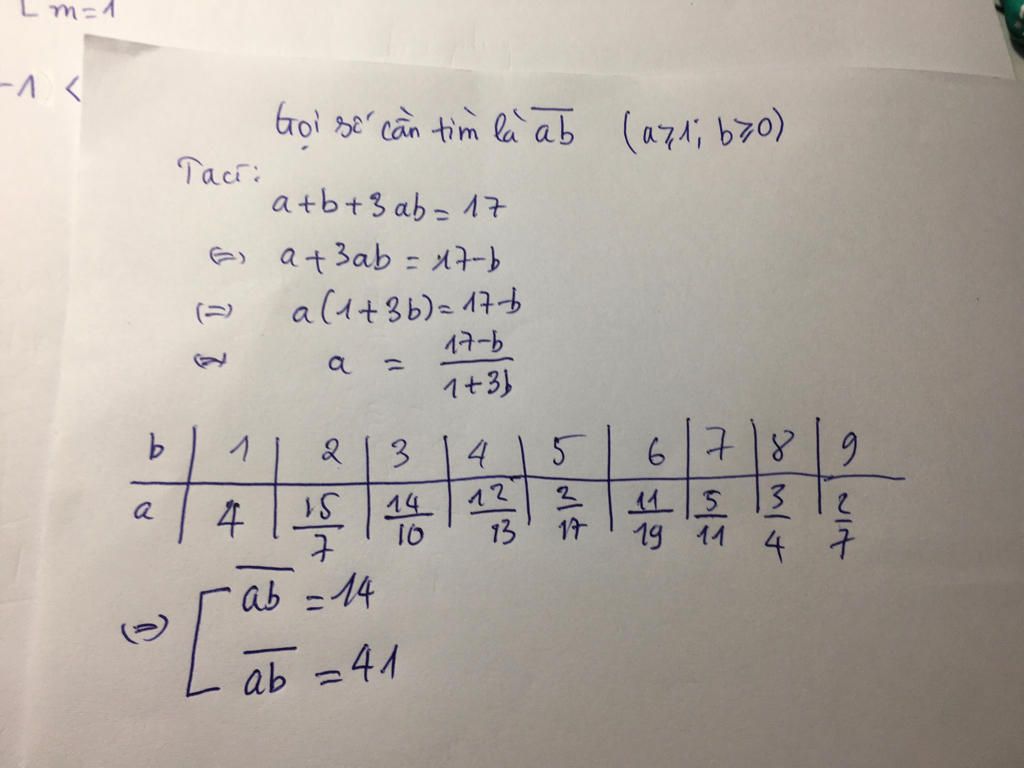 [ m=1
-1 <
Gọi số cần tìm là ab̅ (a⩾1; b⩾0)
Ta có:
a+b+3ab=17
⇔ a+3ab=17-b
⇔ a(1+3b)=17-b
⇔ a = (17-b)/(1+3b)
b | 1 | 2 | 3 | 4 | 5 | 6 | 7 | 8 | 9
a | 4 | 15/7 | 14/10 | 12/13 | 2/17 | 11/19 | 5/11 | 3/4 | 2/7
⇔ [ ab̅ = 14
ab̅ = 41